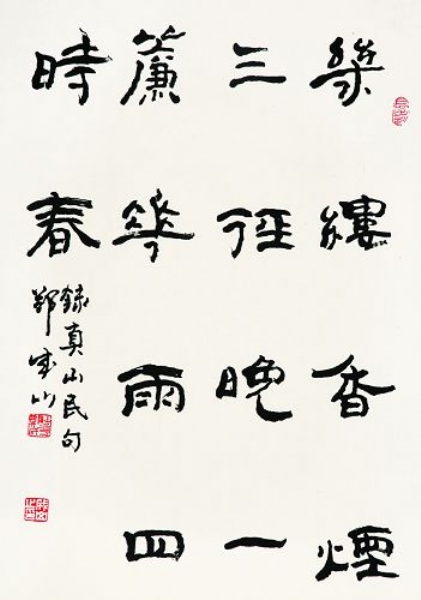 幾縷香煙
三徑晚一
簾華雨四
時春
錄真山民句
鄭成山